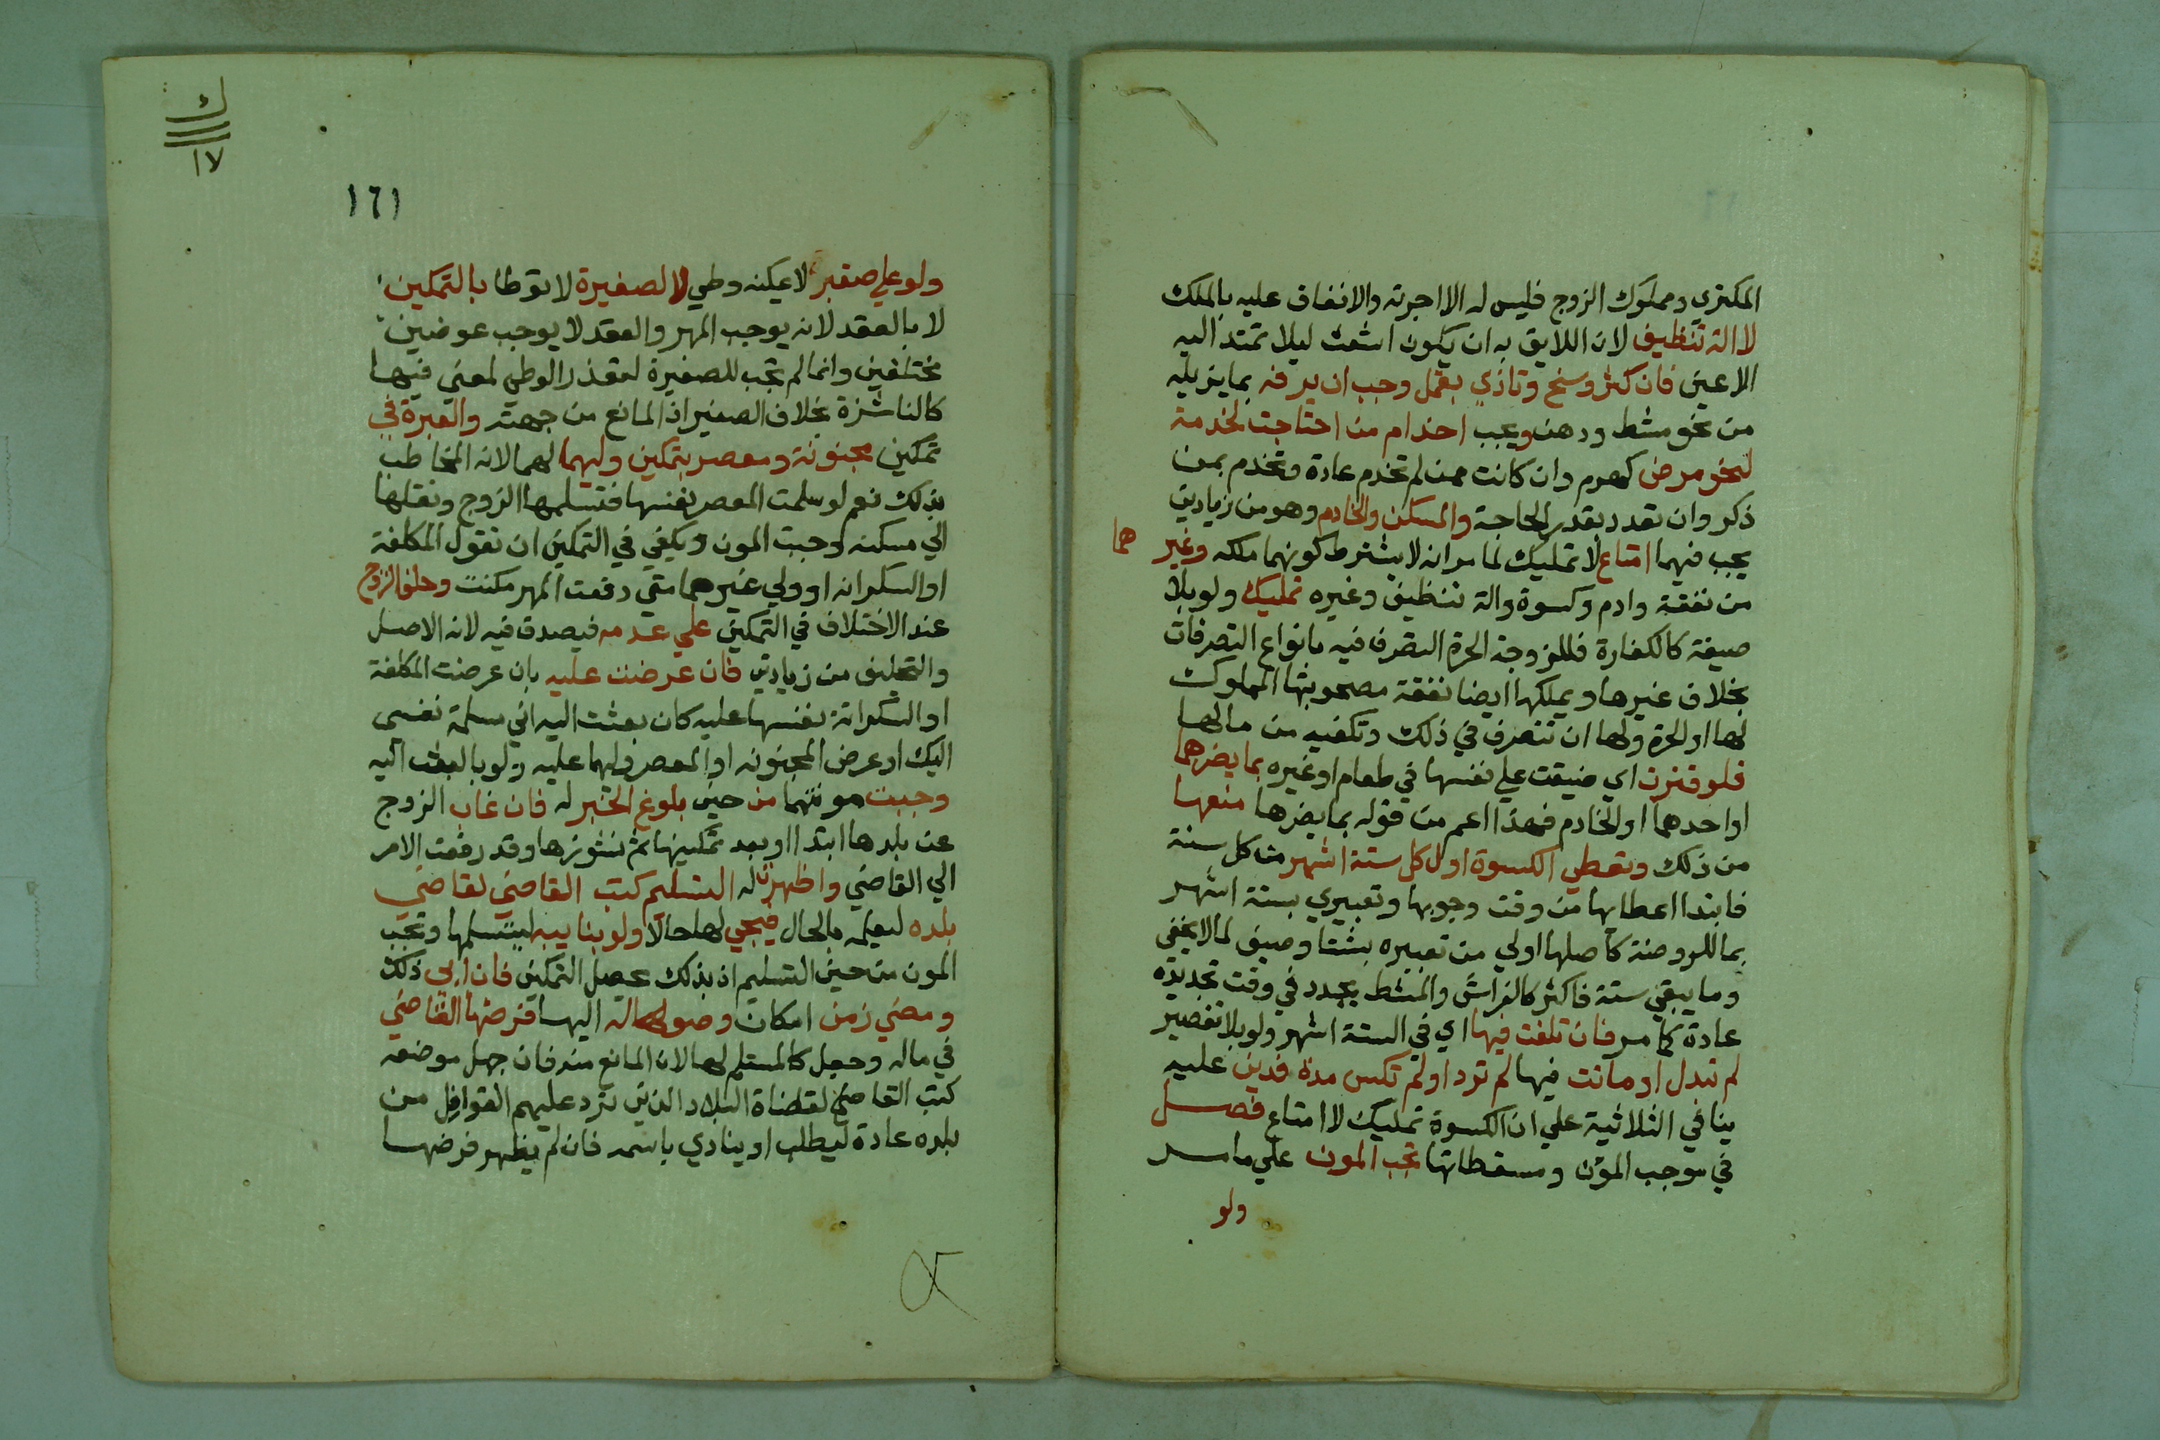 المكتري ومملوك الزوج فليس له الا اجرته والانفاق عليه بالملك
لا الة تنظيف لان اللايق به ان يكون اشعث ليلا تمتد اليه
الاعين فان كثر وسخ وتاذي بقمل وجب ان يرفه بما يزيله
من نحو مشط ودهن ويجب اخدام من احتاجت لخدمة
لنحو مرض كهرم وان كانت ممن لم تخدم عادة وتخدم بمن
ذكر وان تعدد بقدر الحاجة والمسكن والخادم وهو من زيادتي
يجب فيهما امتاع لا تمليك لما مر انه لا يشترط كونهما ملكه وغير هما
من نفقة وادم وكسوة والة تنظيف وغيره تمليك ولو بلا
صيغة كالكفارة فللزوجة الحرة التصرف فيه بانواع التصرفات
بخلاف غيرها ويملكها ايضا نفقة مصحوبتها المملوكة
لها او الحرة ولها ان تتصرف في ذلك وتكفيه من مالها
فلو قترت اي ضيقت علي نفسها في طعام او غيره بما يضرهما
او احدهما او الخادم فهذا اعم من قوله بما يضرها منعها
من ذلك وتعطي الكسوة اول كل ستة اشهر من كل سنة
فابتدا اعطايها من وقت وجوبها وتعبيري بستة اشهر
بما للروضة كاصلها اولي من تعبيره بشتا وصيف لما لا يخفي
وما يبقي سنة فاكثر كالفراش والمشط يجدد في وقت تجديده
عادة كما مر فان تلفت فيها اي في الستة اشهر ولو بلا تقصير
لم تبدل او ماتت فيها لم ترد او لم تكس مدة فدين عليه
بنا في الثلاثية علي ان الكسوة تمليك لا امتاع فصل
في موجب المؤن ومسقطاتها تجب المون علي ما مر
ولو
ك
١٧
١٦١
ولو علي صغير لا يمكنه وطي لا لصغيرة لا توطا بالتمكين
لا بالعقد لانه يوجب المهر والعقد لا يوجب عوضين
مختلفين وانما لم تجب للصغيرة لتعذر الوطي لمعني فيها
كالناشزة بخلاف الصغير اذ المانع من جهته والعبرة في
تمكين مجنونة ومعصر بتمكين وليهما لهما لانه المخاطب
بذلك نعم لو سلمت المعصر نفسها فتسلمها الزوج ونقلها
الي مسكنه وجبت المون ويكفي في التمكين ان تقول المكلفة
او السكرانه او ولي غيرهما متي دفعت المهر مكنت وحلف الزوج
عند الاختلاف في التمكين علي عدمه فيصدق فيه لانه الاصل
والتحليف من زيادتي فان عرضت عليه بان عرضت المكلفة
او السكرانة نفسها عليه كان بعثت اليه اني مسلمة نفسي
اليك او عرض المجنونه او المعصر وليهما عليه ولو بالبعث اليه
وجبت مونتهما من حين بلوغ الخبر له فان غاب الزوج
عن بلدها ابتدا او بعد تمكينها ثم نشوزها وقد رفعت الامر
الي القاضي واظهرت له التسليم كتب القاضي لقاضي
بلده ليعلمه بالحال فيجي لها حالا ولو بنايبه ليتسلمها وتجب
المون من حين التسليم اذ بذلك يحصل التمكين فان ابي ذلك
ومضي زمن امكان وصوله اليها فرضها القاضي
في ماله وجعل كالمستلم لها لان المانع منه فان جهل موضعه
كتب القاضي لقضاة البلاد الذين ترد عليهم القوافل من
بلده عادة ليطلب او ينادي باسمه فان لم يظهر فرضها